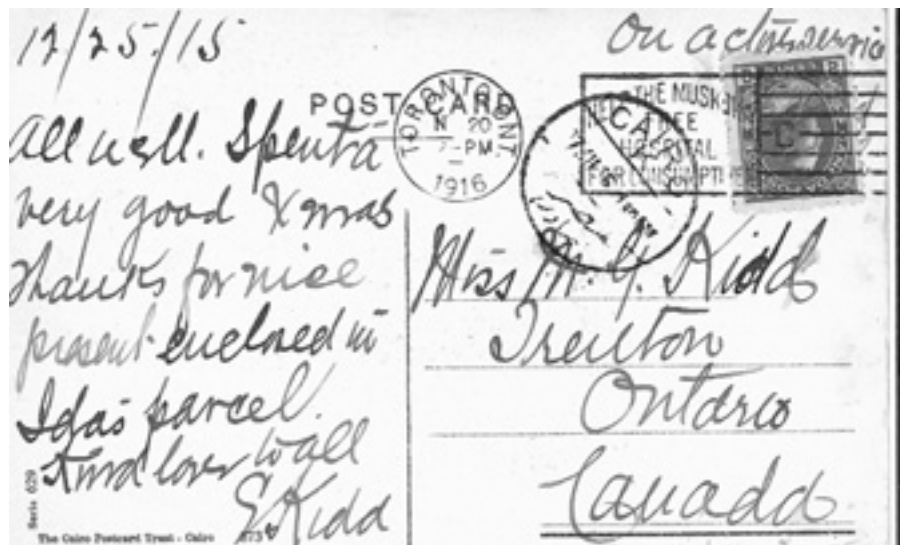 12/25/15
On active service
POST CARD
TORONTO ONT
20
PM
1916
THE MUSK
FREE
HOSPITAL
FOR CONSUMPTI
CAI
C
All well. Spent a
very good Xmas
Thanks for nice
present enclosed in
Ida's parcel.
Kind love to all
E. Kidd
Miss M. Y. Kidd
Trenton
Ontario
Canada
Serie 629
The Cairo Postcard Trust - Cairo
873